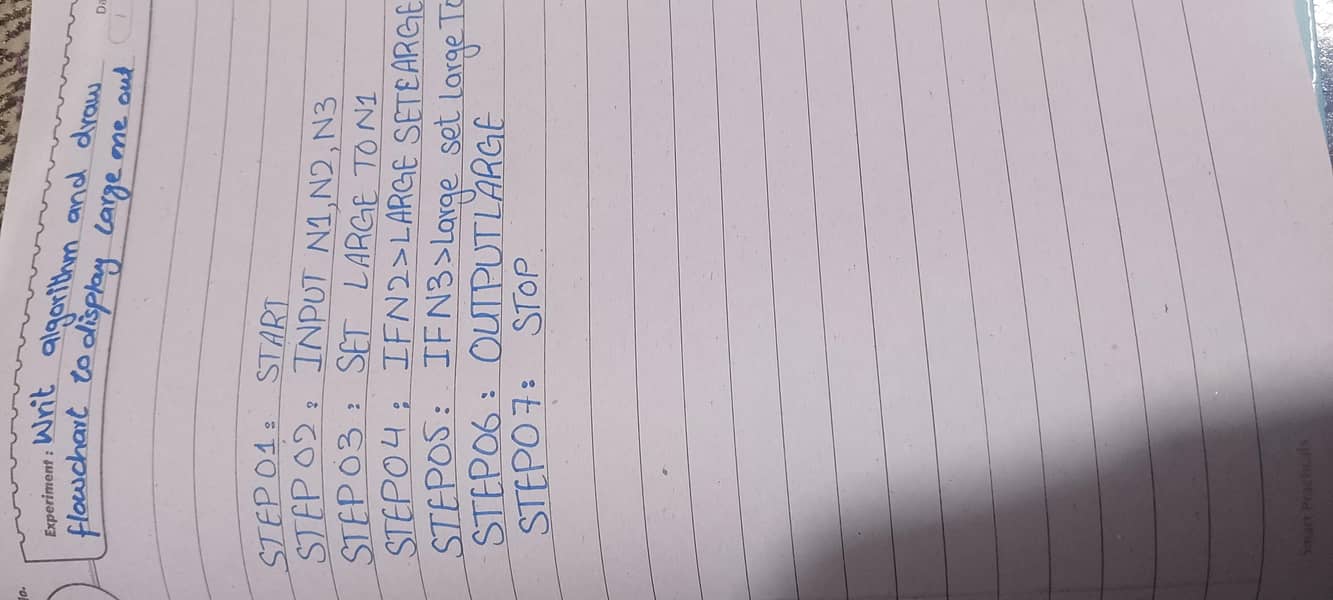 Experiment: Writ algorithm and draw
flowchart to display large one out
STEP01: START
STEP02: INPUT N1,N2,N3
STEP03: SET LARGE TO N1
STEP04: IFN2>LARGE SETLARGE
STEP05: IFN3>Large set Large To
STEP06: OUTPUTLARGE
STEP07: STOP
Smart Practicals